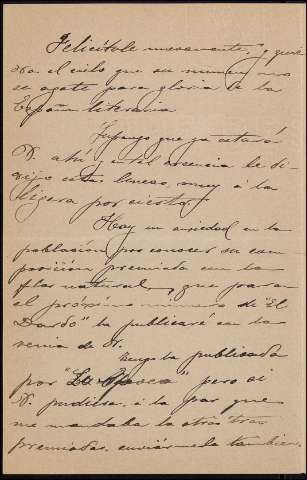 Felicítole nuevamente, y quie-
ra el cielo que su numen no
se agote para gloria de la
España literaria.
Supongo que ya estará
V. ahí y en tal creencia le di-
rijo estas líneas, muy á la
ligera por cierto.
Hay un ansiedad en la
población por conocer su com
posición premiada con la
flor natural, que para
el próximo número de "El
Dardo" la publicaré con la
venia de V.
Tengo la publicada
por "La Época" pero si
V. pudiese, á la par que
me mandaba la otras tres
premiadas, enviármela tambien,